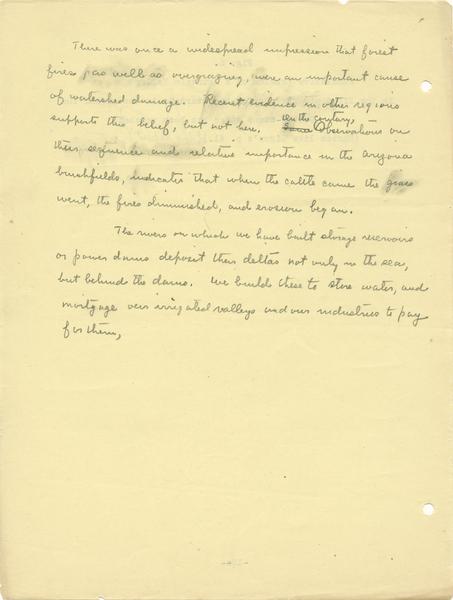 There was once a widespread impression that forest
fires, as well as overgrazing, were an important cause
of watershed damage. Recent evidence in other regions
supports this belief, but not here. On the contrary, Observations on
their sequence and relative importance in the Arizona
brushfields, indicates that when the cattle came the grass
went, the fires diminished, and erosion began.
The rivers on which we have built storage reservoirs
or power dams deposit their deltas not only in the sea,
but behind the dams. We build these to store water, and
mortgage our irrigated valleys and our industries to pay
for them,